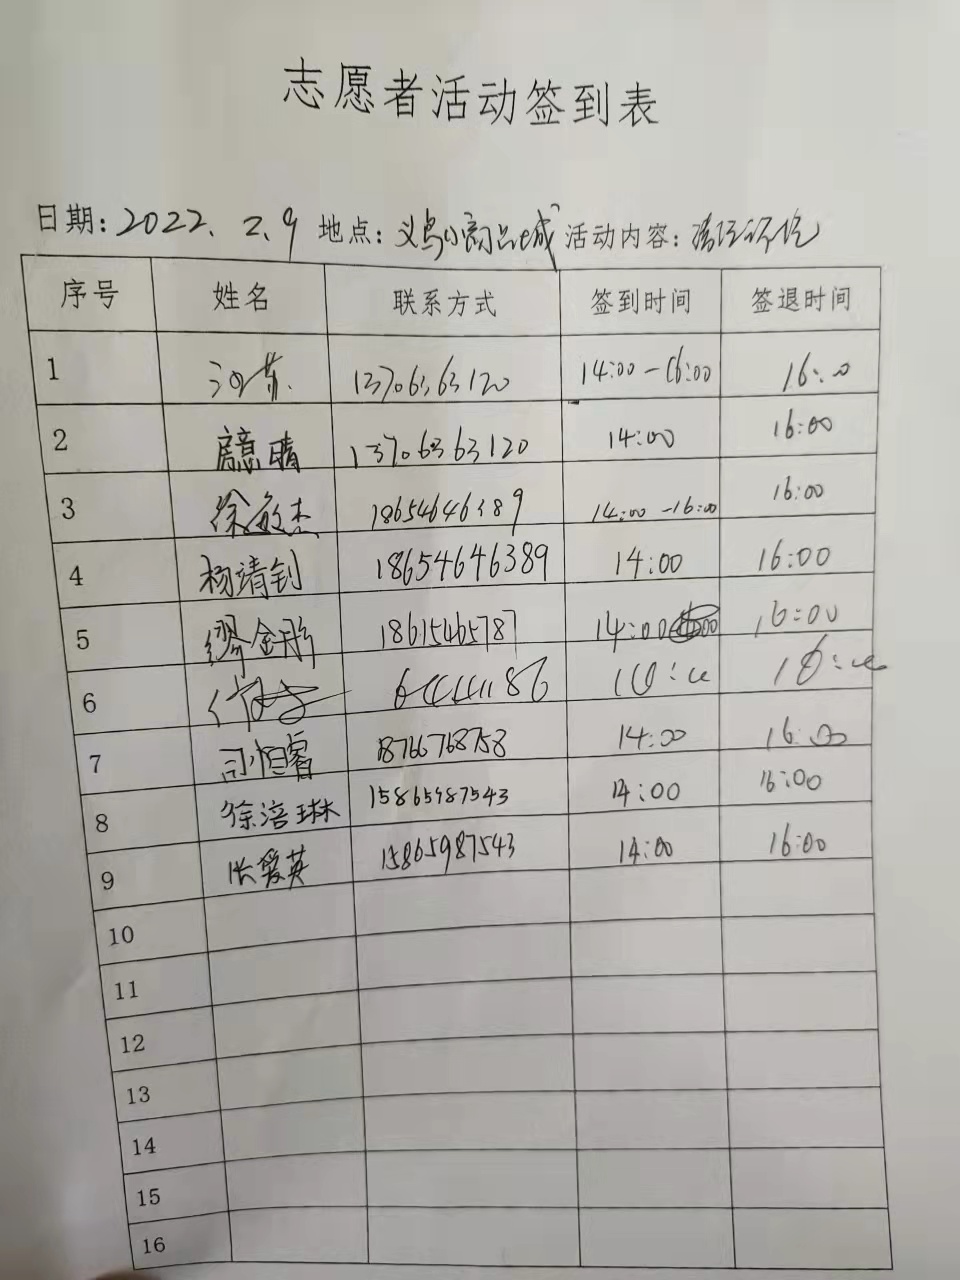 志愿者活动签到表
日期: 2022. 2. 9 地点: 义乌小商品城 活动内容:
序号 姓名 联系方式 签到时间 签退时间
1 13706363120 14:00-16:00 16:00
2 晴 13706363120 14:00 16:00
3 徐敏杰 18654646389 14:00-16:00 16:00
4 杨清钊 18654646389 14:00 16:00
5 缪金彤 18615465787 14:00 16:00
6
7 司恒睿 18766768758 14:00 16:00
8 徐涪琳 15865987543 14:00 16:00
9 张爱英 15865987543 14:00 16:00
10
11
12
13
14
15
16